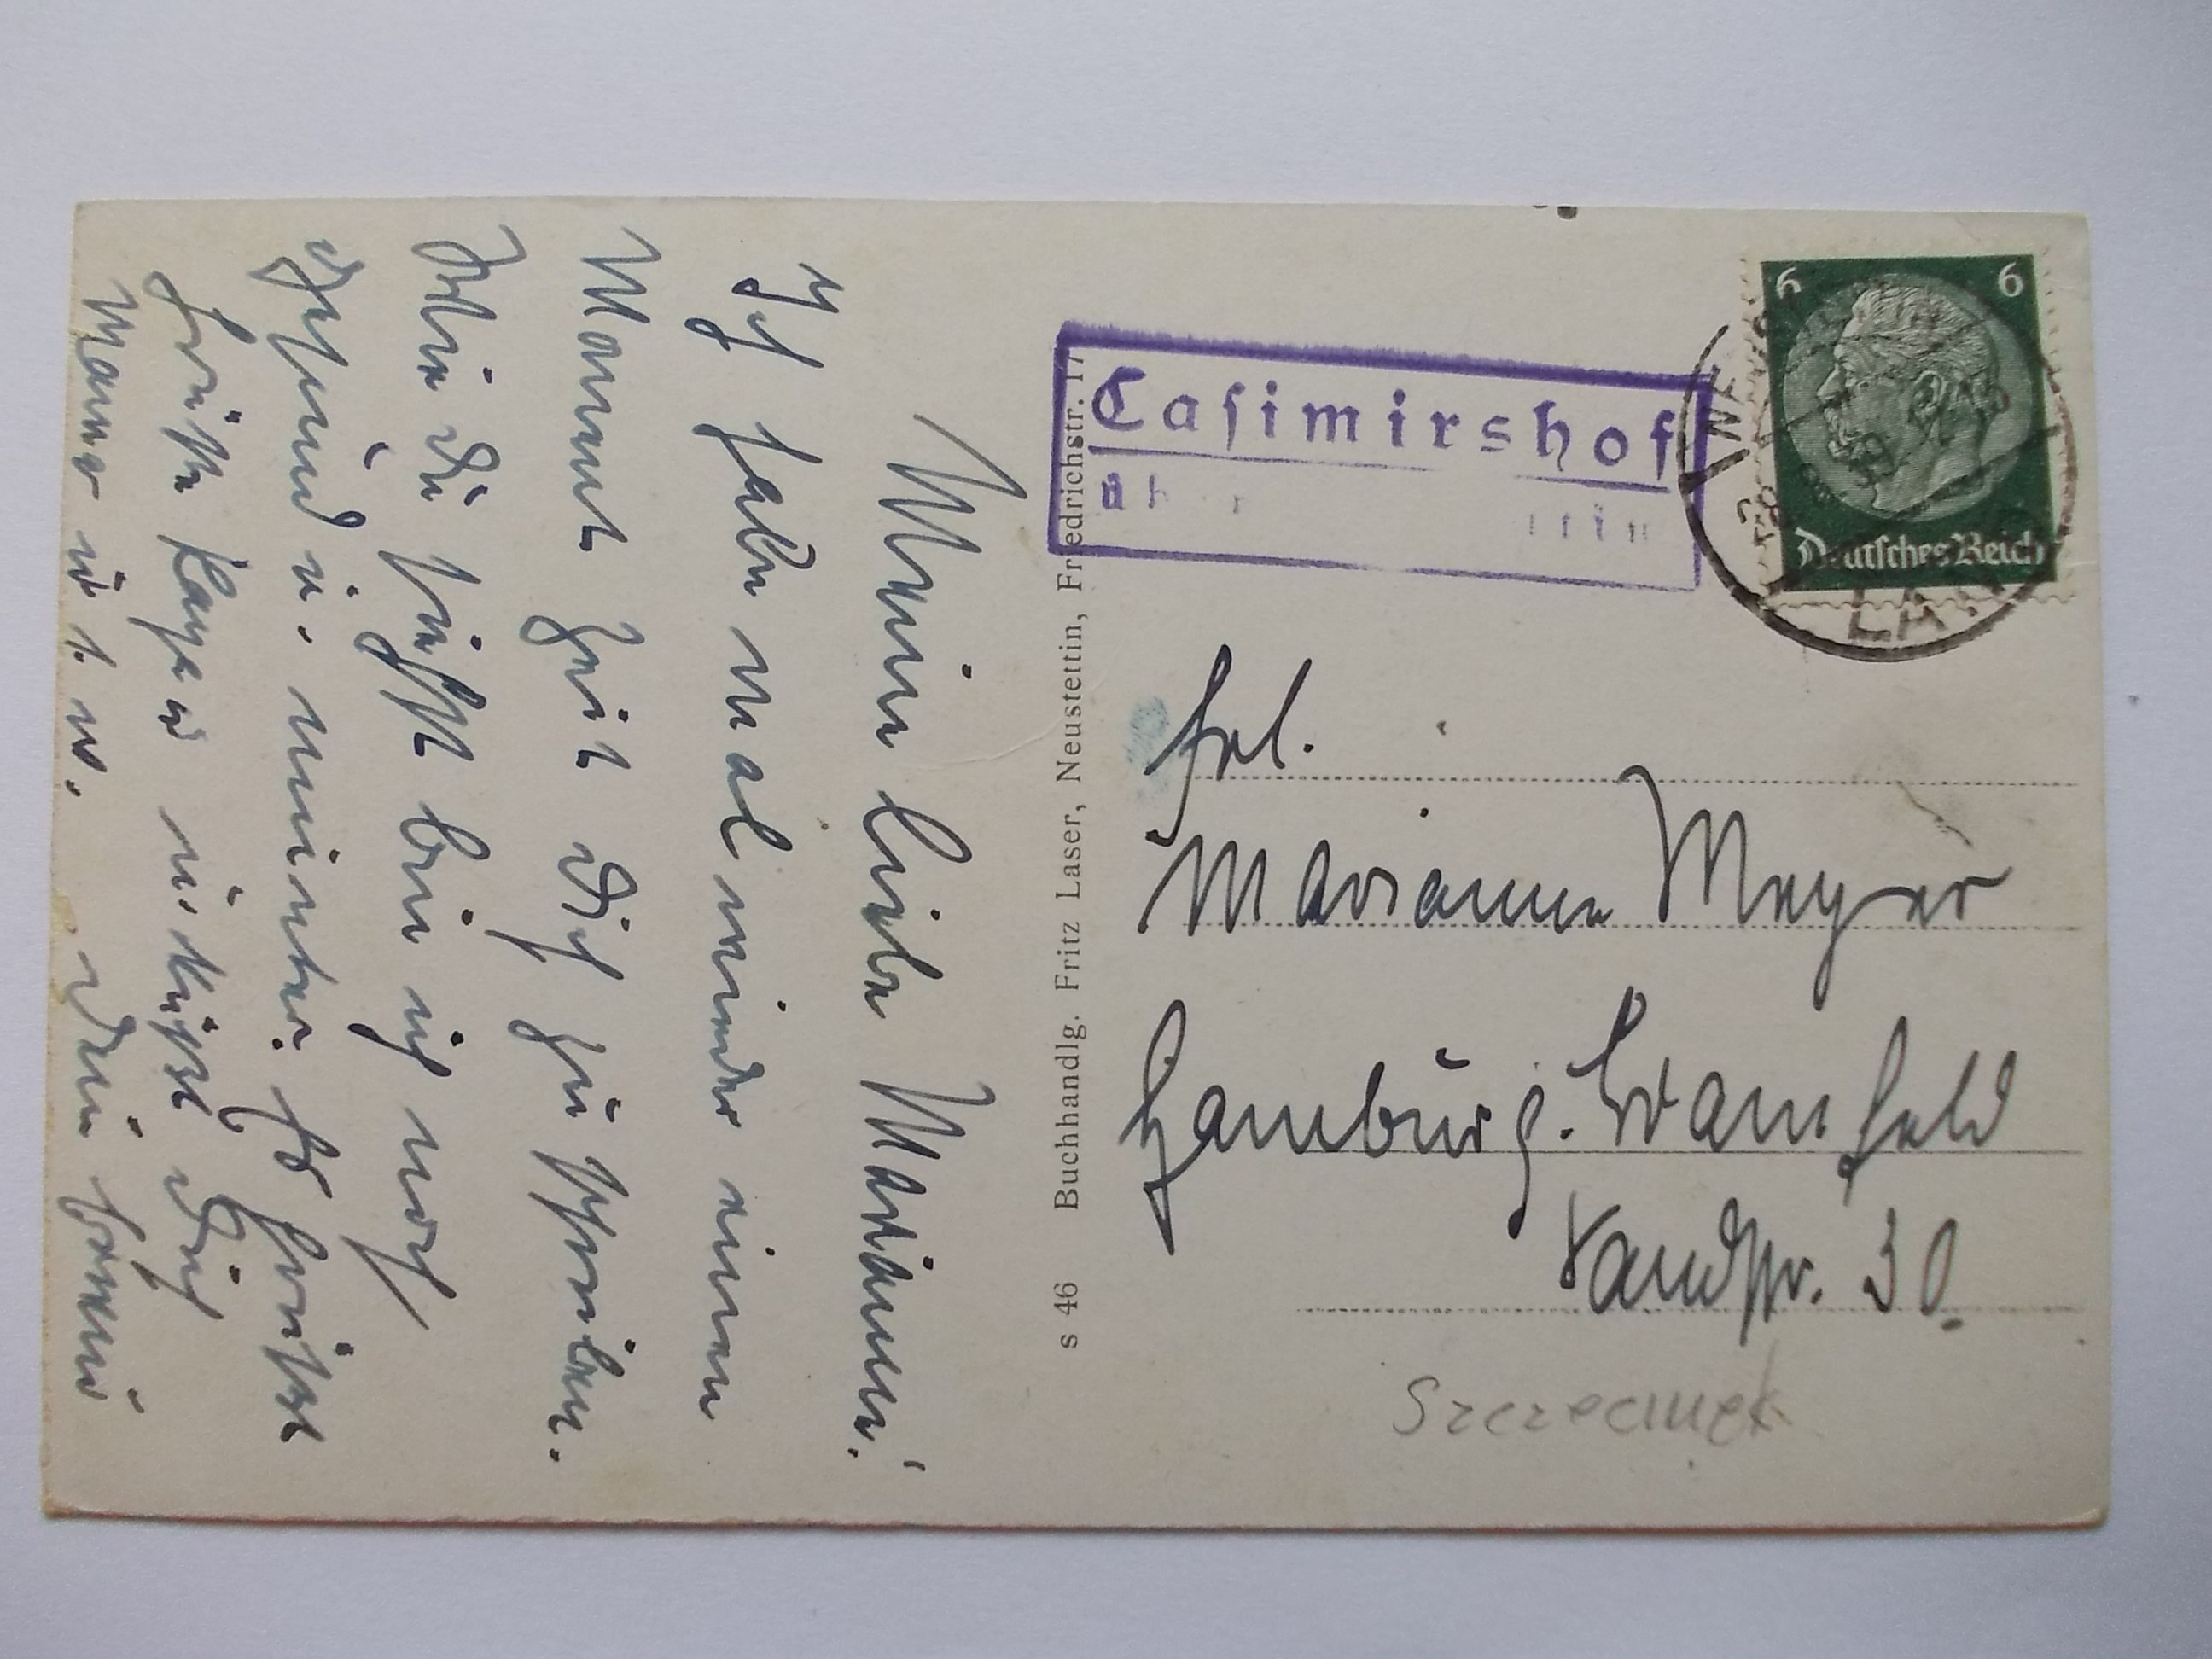 Meine liebe Marianne!
Ich habe mal wieder einen
Moment Zeit Dir zu schreiben.
Wie Du siehst bin ich noch
gesund u. munter. Es grüßt
u. küßt Dich
Mama u. s. w. Dein
s 46 Buchhandlg. Fritz Laser, Neustettin, Friedrichstr. 17
Casimirshof
über
6 6
Deutsches Reich
Frl.
Marianne Meyer
Hamburg-Bramfeld
Landstr. 30.
Szczecinek